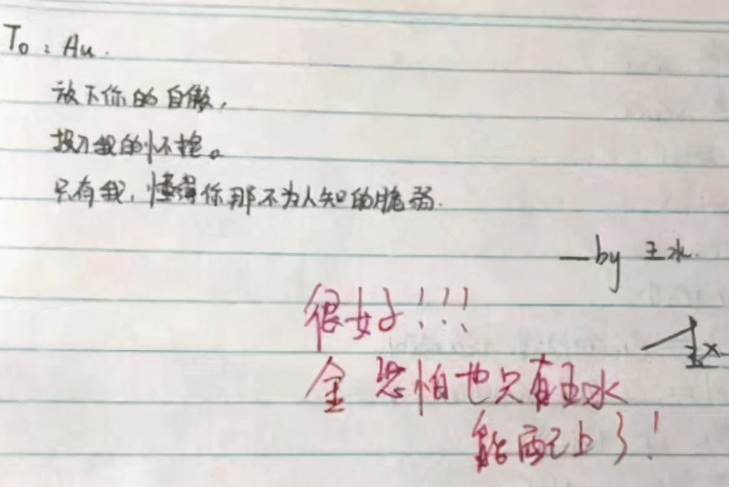 To: Au.
放下你的自傲，
投入我的怀抱。
只有我，懂得你那不为人知的脆弱.
—by 王水.
很好！！！
金恐怕也只有王水
能配上了！